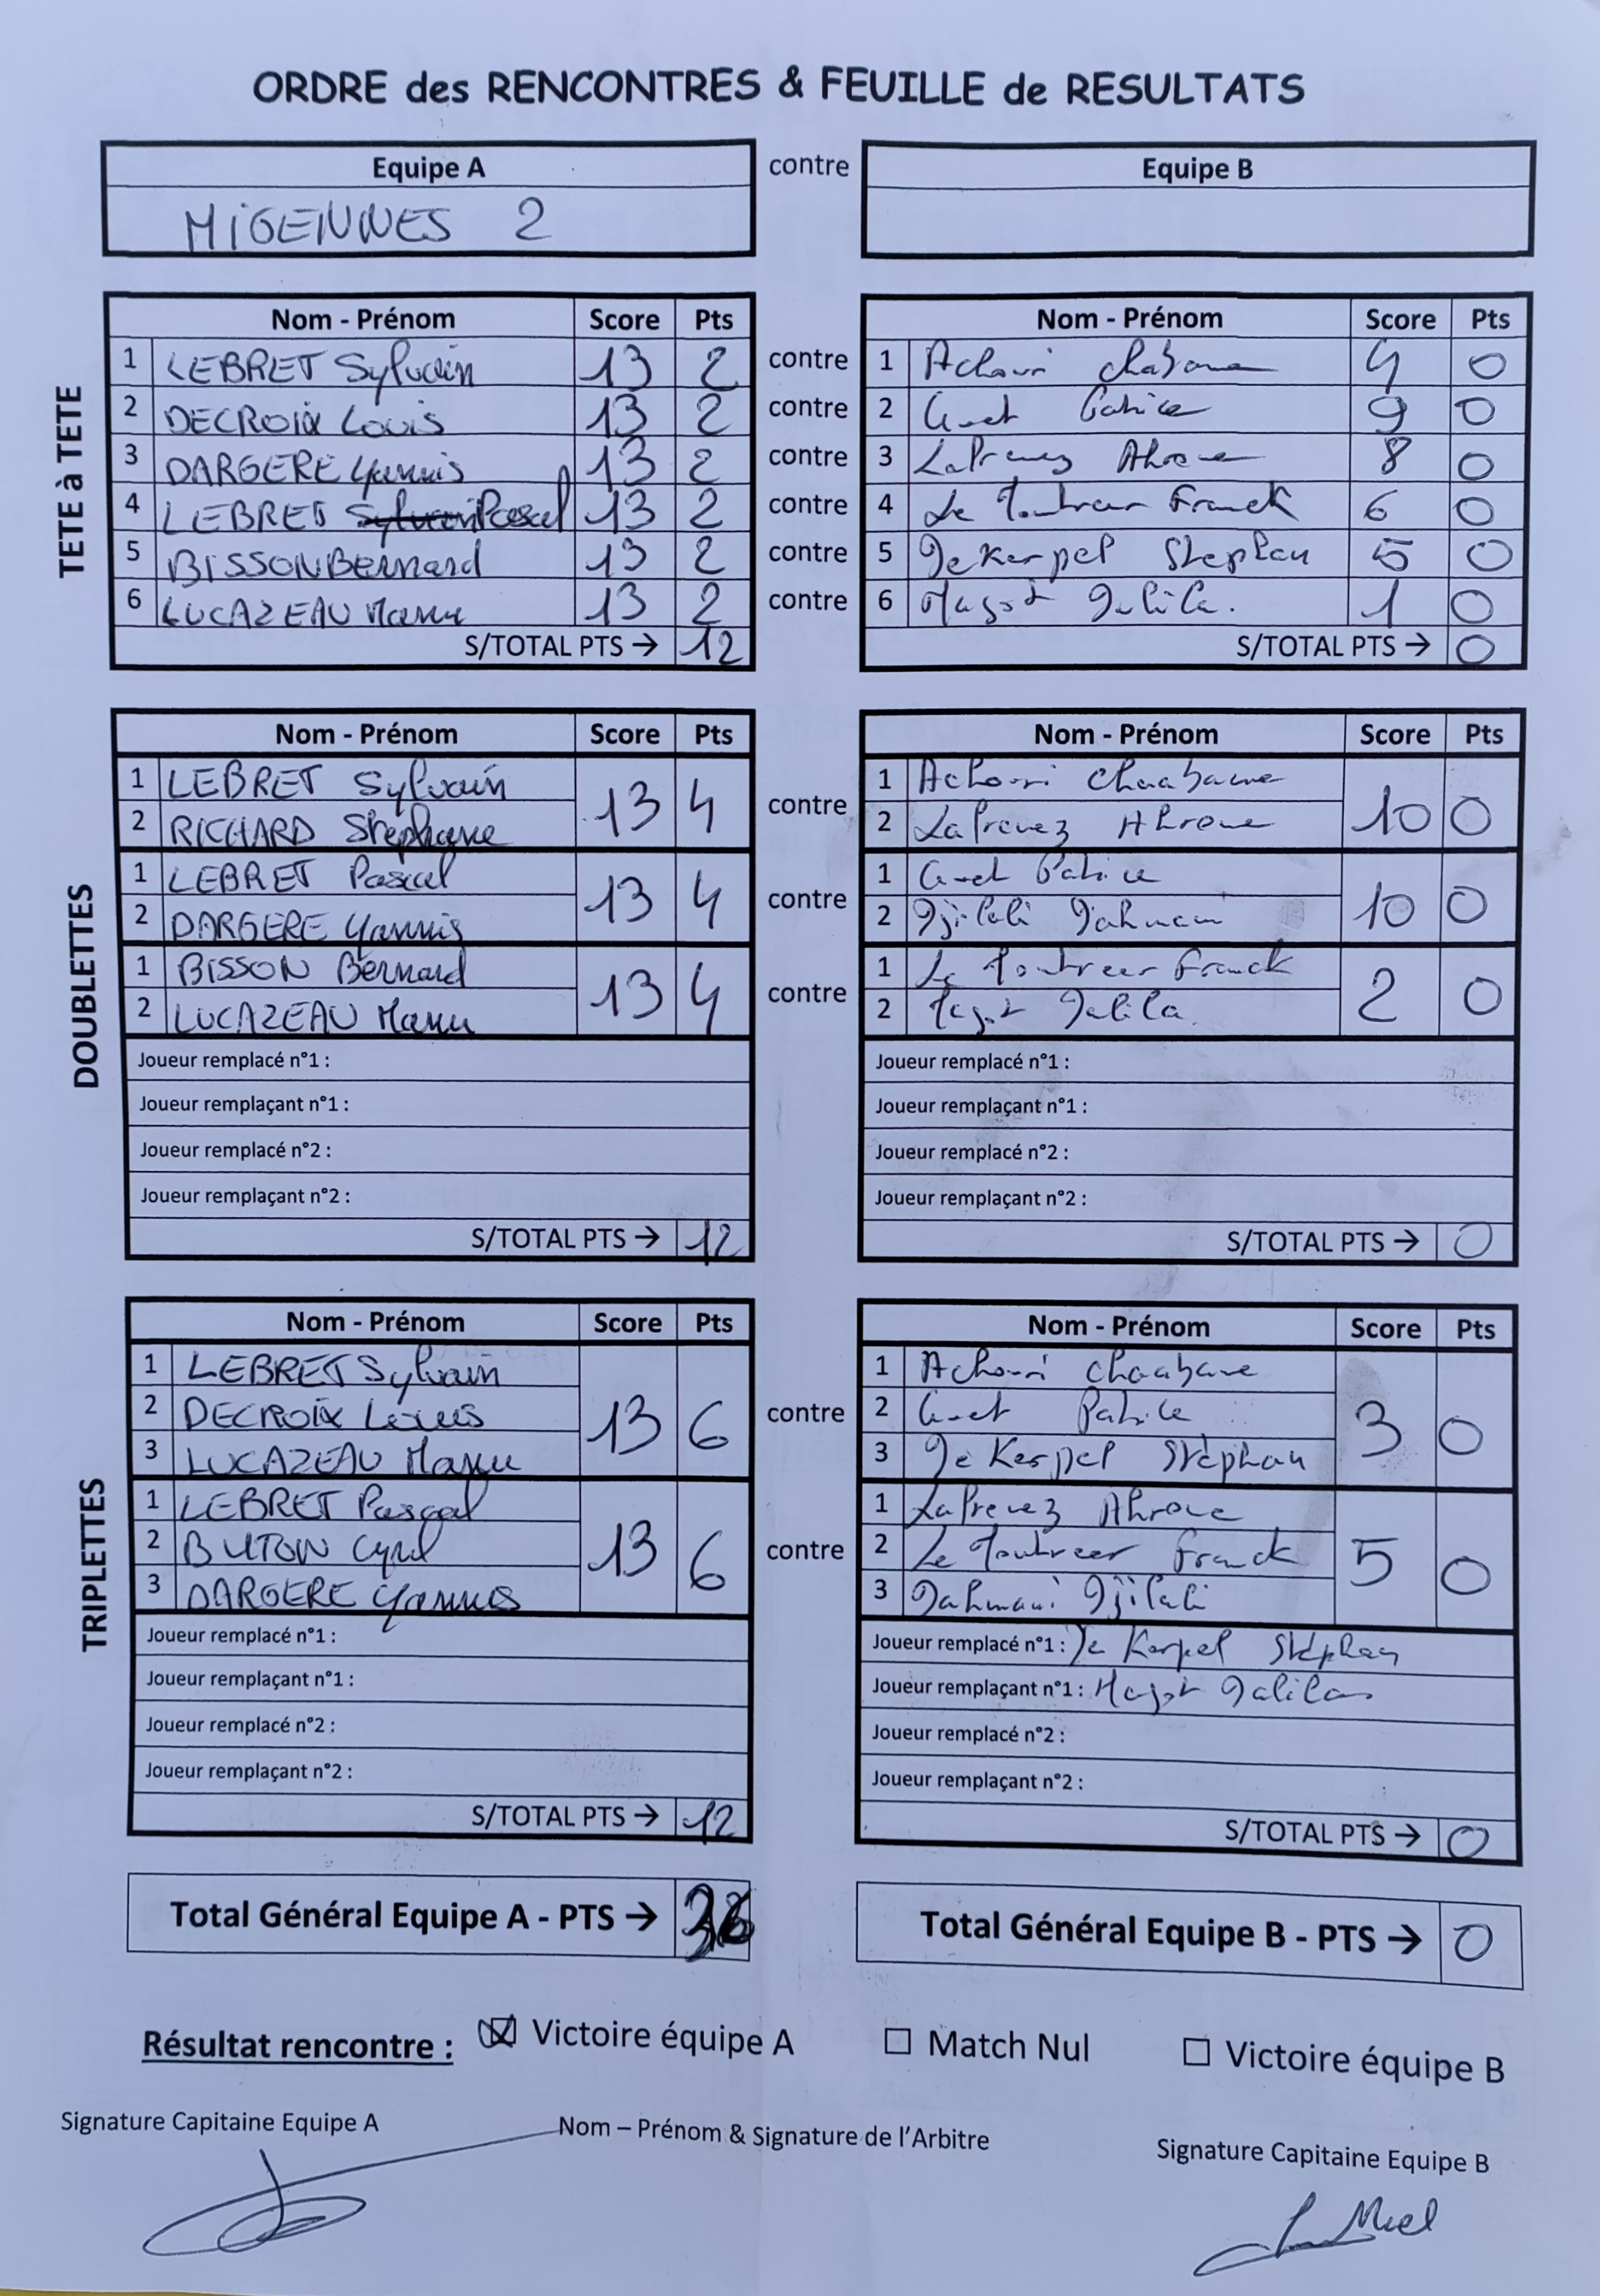 ORDRE des RENCONTRES & FEUILLE de RESULTATS
Equipe A contre Equipe B
MIGENNES 2
TETE à TETE
Nom - Prénom Score Pts Nom - Prénom Score Pts
1 LEBRET Sylvain 13 2 contre 1 Achouri 4 0
2 DECROIX Louis 13 2 contre 2 9 0
3 DARGERE Yannis 13 2 contre 3 LaPrevez Ahrone 8 0
4 LEBRET Pascal 13 2 contre 4 Le Franck 6 0
5 BISSON Bernard 13 2 contre 5 De Kerpel Stephan 5 0
6 LUCAZEAU Manu 13 2 contre 6 Magot Dalila. 1 0
S/TOTAL PTS → 12 S/TOTAL PTS → 0
DOUBLETTES
Nom - Prénom Score Pts Nom - Prénom Score Pts
1 LEBRET Sylvain 13 4 contre 1 Achouri Chaabane 10 0
2 RICHARD Stephane 2 LaPrevez Ahrone
1 LEBRET Pascal 13 4 contre 1 Patrice 10 0
2 DARGERE Yannis 2 Djilali Dahmani
1 BISSON Bernard 13 4 contre 1 Le Franck 2 0
2 LUCAZEAU Manu 2 Magot Dalila.
Joueur remplacé n°1 : Joueur remplacé n°1 :
Joueur remplaçant n°1 : Joueur remplaçant n°1 :
Joueur remplacé n°2 : Joueur remplacé n°2 :
Joueur remplaçant n°2 : Joueur remplaçant n°2 :
S/TOTAL PTS → 12 S/TOTAL PTS → 0
TRIPLETTES
Nom - Prénom Score Pts Nom - Prénom Score Pts
1 LEBRET Sylvain 1 Achouri Chaabane
2 DECROIX Louis 13 6 contre 2 Patrice 3 0
3 LUCAZEAU Manu 3 De Kerpel Stéphan
1 LEBRET Pascal 1 LaPrevez Ahrone
2 BUTON Cyril 13 6 contre 2 Le Franck 5 0
3 DARGERE Yannis 3 Dahmani Djilali
Joueur remplacé n°1 : Joueur remplacé n°1 : De Kerpel Stéphan
Joueur remplaçant n°1 : Joueur remplaçant n°1 : Magot Dalila
Joueur remplacé n°2 : Joueur remplacé n°2 :
Joueur remplaçant n°2 : Joueur remplaçant n°2 :
S/TOTAL PTS → 12 S/TOTAL PTS → 0
Total Général Equipe A - PTS → 36 Total Général Equipe B - PTS → 0
Résultat rencontre : ☒ Victoire équipe A ☐ Match Nul ☐ Victoire équipe B
Signature Capitaine Equipe A Nom – Prénom & Signature de l'Arbitre Signature Capitaine Equipe B